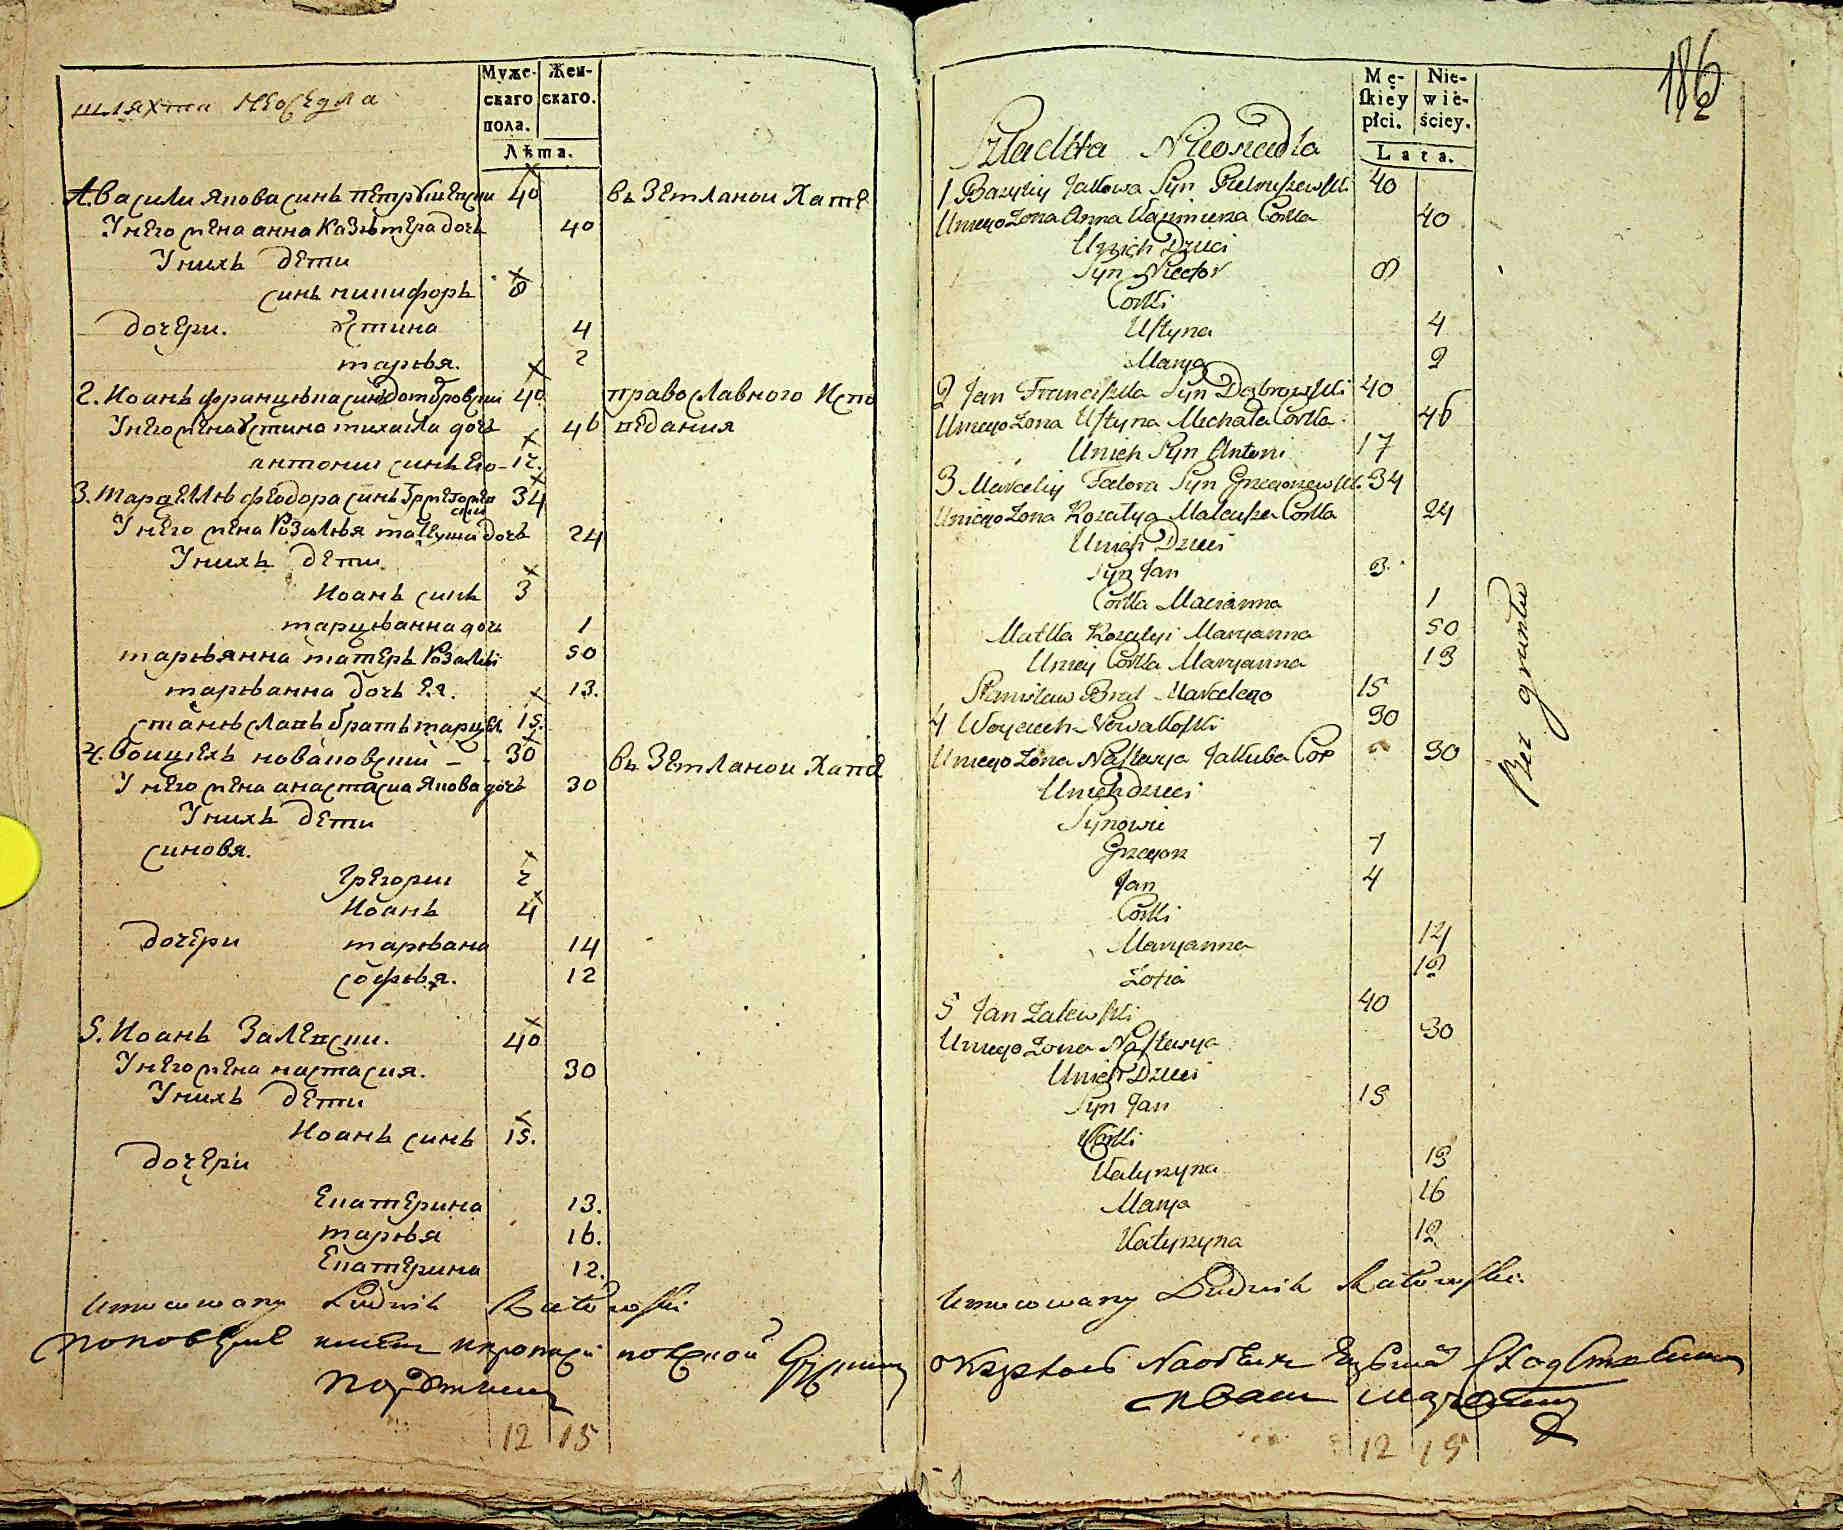 Муже- Жен-
скаго скаго.
пола.
Лѣта.
шляхта Неоседла
1. Василиі Якова синь петрушевски 40 въ Земланои Хате
У него жена анна Казѣмера дочь 40
У нихъ дети
синь никифорь 8
дочери. Устина 4
марья. 2
2. Иоань францѣшка синь домбровски 40 православного Испо
У него жена Устина михаила дочь 46 ведания
антонии синь его 17.
3. Марцелѣ феодора синь Гржегоржев 34
ски
У него жена Розалья матеуша дочь 24
У нихъ дети
Иоань синь 3
марцѣанна дочь 1
марьянна матерь Розалѣи 50
марѣанна дочь Ея. 13.
станѣславь брать марцел 15.
4. Воицехь новаковский 30 въ Земланои Хате
У него жена анастасиа Якова дочь 30
У нихъ дети
синовя.
Грегории 7
Иоань 4
дочери марѣана 14
софья. 12
5. Иоань Залевски. 40
У него жена настасия. 30
У нихъ дети
Иоань синь 15.
дочери
Екатерина 13.
марья 16.
Екатерина 12.
Umocowany Ludwik
12 15
186
Mę- Nie-
ſkiéy wie-
płci. ściey.
Lata.
Szlachta Nieosiadła
1 Bazyliy Jakowa Syn Pietruszewſki 40
U niego Zona Anna Kazimierza Corka 40
U nich Dzieci
Syn Nicefor 8
Corki
Uſtyna 4
Marya 2
2 Jan Franciſzka Syn Dąbrowſki 40
U niego Zona Uſtyna Michała Corka 46
U nich Syn Antoni 17
3 Marceliy Fedora Syn Grzegorzewſki 34
U niego Zona Rozalya Mateusza Corka 24
U nich Dzieci
Syn Jan 3
Corka Macianna 1
Matka Rozalyi Maryanna 50
U niey Corka Maryanna 13
Stanisław Brat Marcelego 15
4 Woyciech Nowakoſki 30
U niego Zona Naſtazya Jakuba Cor 30
U nich dzieci
Synowie
Grzegorz 7
Jan 4
Corki
Maryanna 14
Zofia 12
5 Jan Zalewſki 40
U niego Zona Naſtazya 30
U nich Dzieci
Syn Jan 15
Corki
Katyrzyna 13
Marya 16
Katyrzyna 12
Bez gruntu
Umocowany Ludwik
12 15